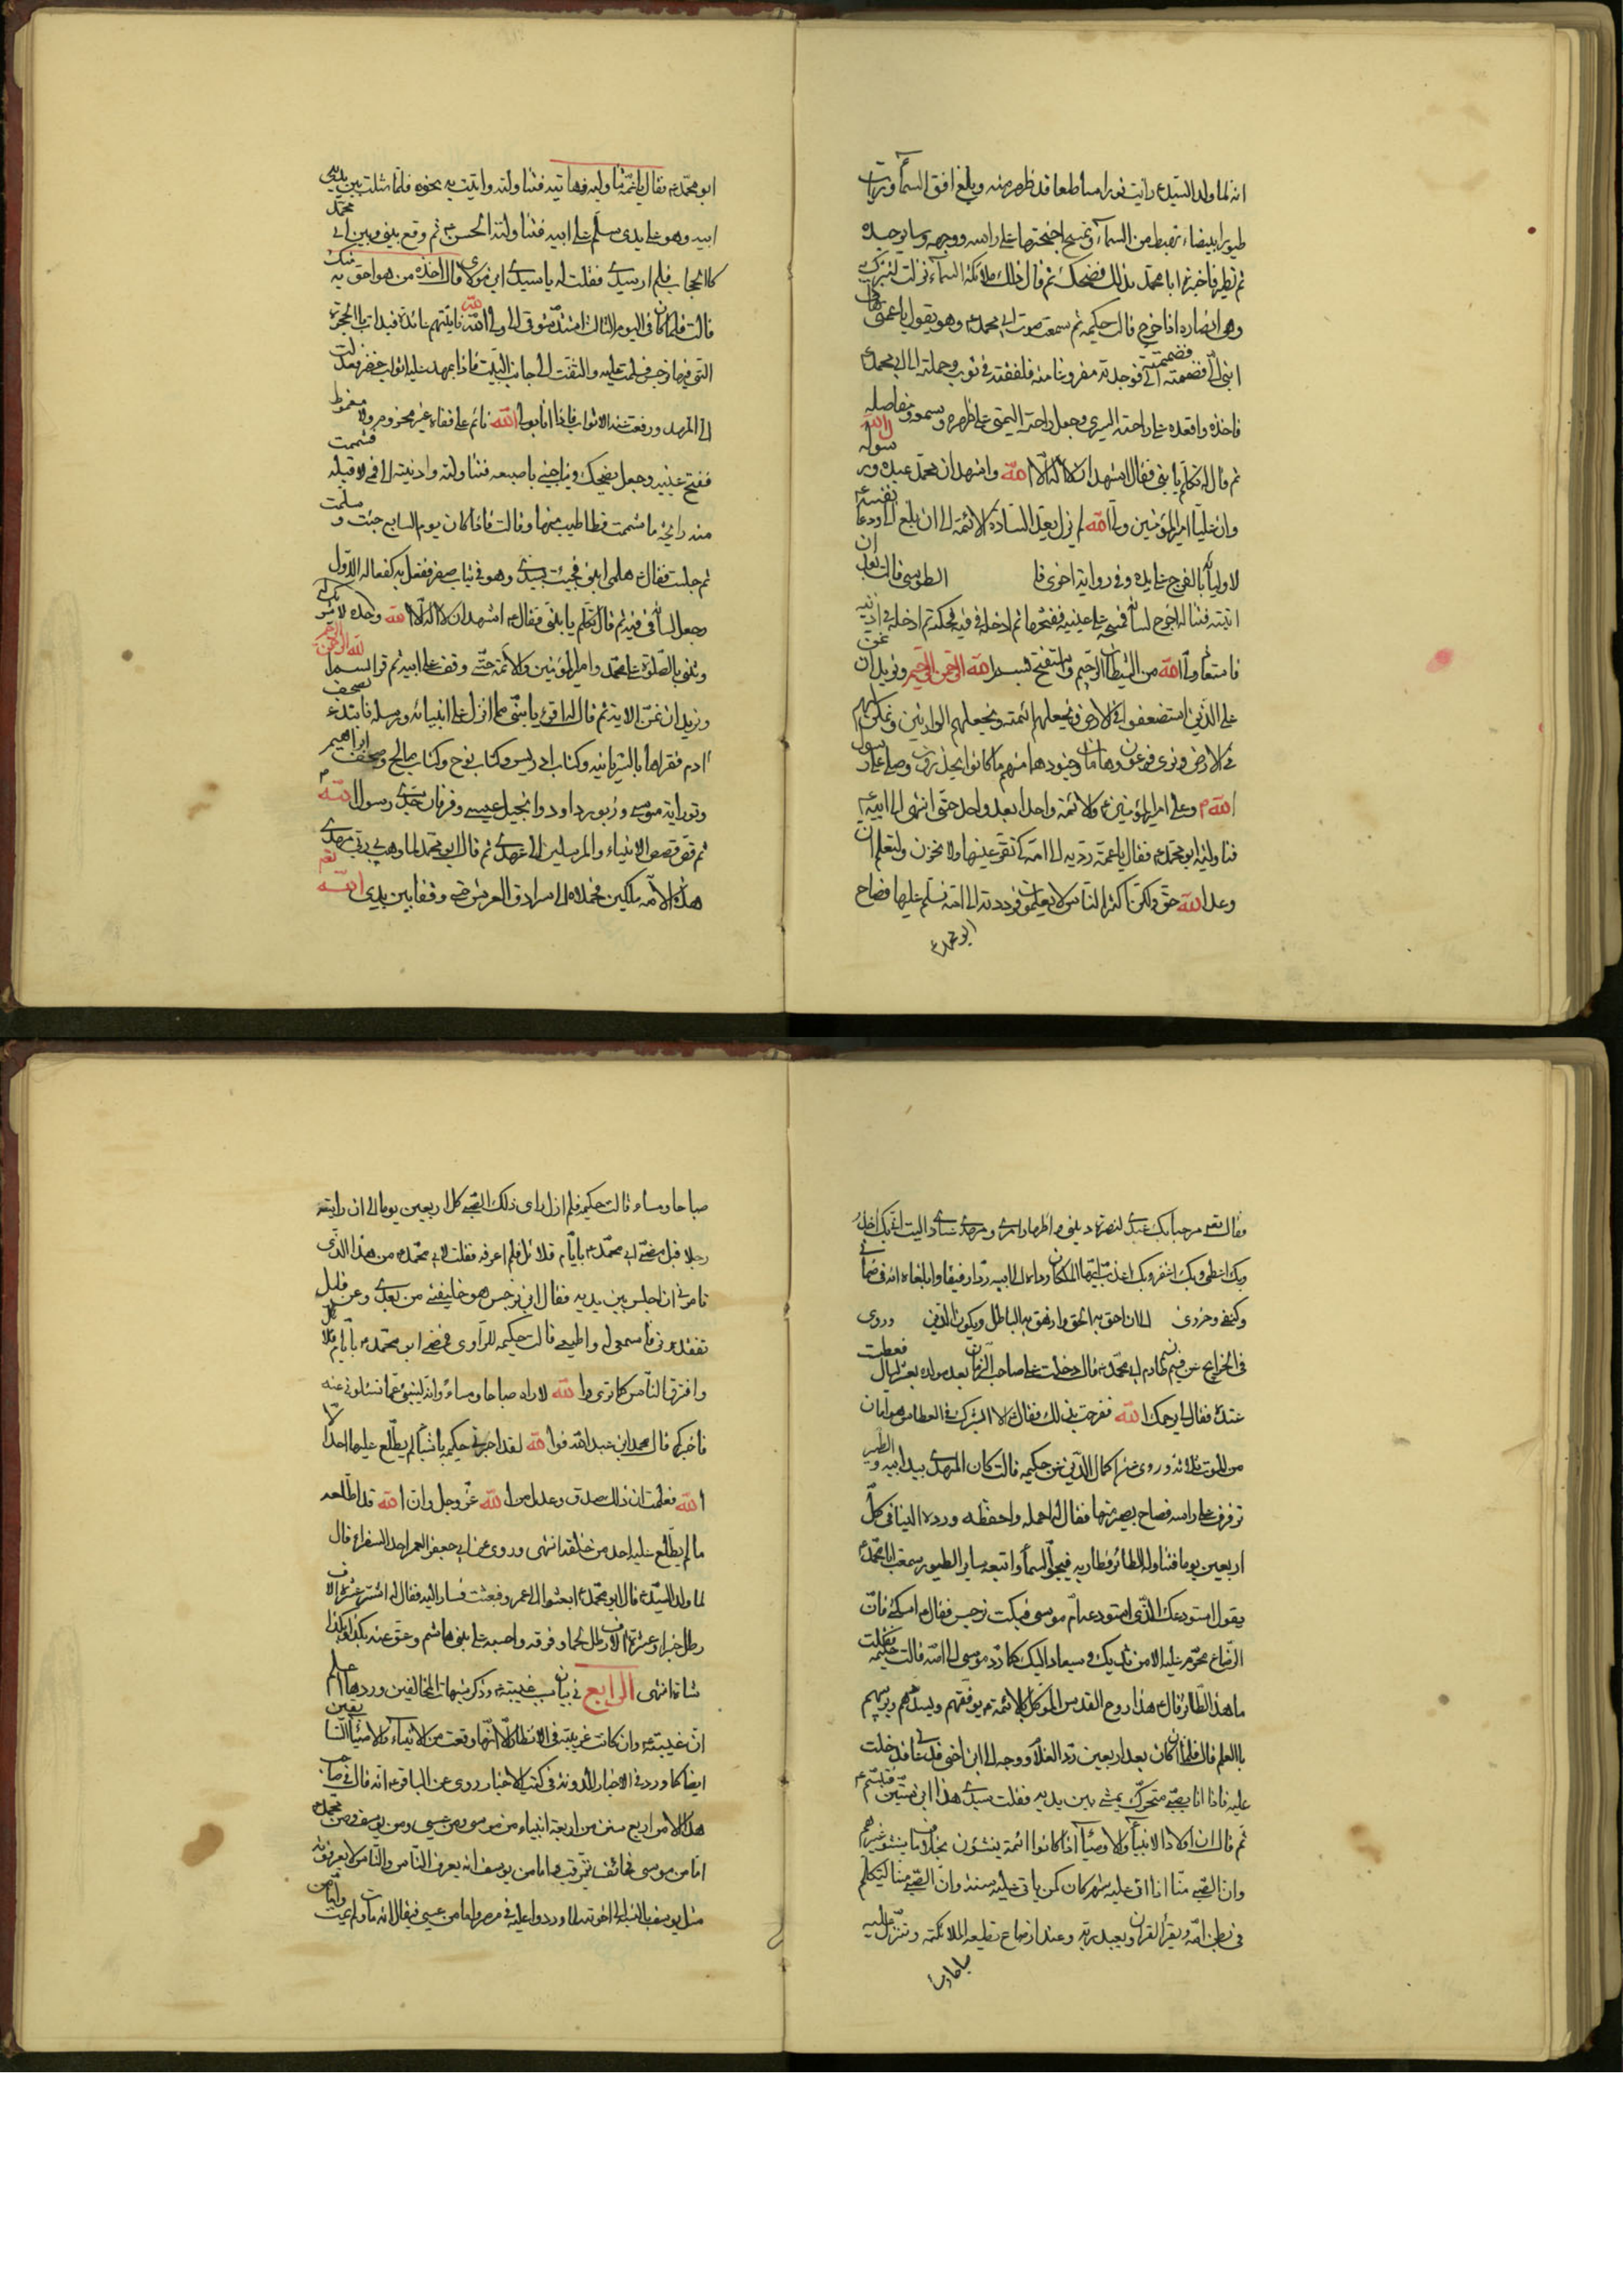 انه لما ولد السيد ع رايت نورا ساطعا قد ظهر منه وبلغ افق السماء ورايت
طيورا بيضاء تهبط من السماء وتمسح اجنحتها على راسه ووجهه وساير جسده
ثم تطير فاخبرنا ابا محمد بذلك فضحك ثم قال تلك ملائكة السماء نزلت لتتبرك به
وهو انصاره اذا خرج قالت حكيمه ثم سمعت صوت ابي محمد ع وهو يقول يا عمتي هاتي
ابني الي فضممته الي فوجدته مفروغا منه فلففته في ثوب وحملته الى ابي محمد ع
فاخذه واقعده على راحته اليسرى وجعل راحته اليمنى على ظهره و ومفاصله
ثم قال له تكلم يا بني فقال اشهد ان لا اله الا الله واشهد ان محمد عبده ورسوله
وان عليا امير المؤمنين ولي الله لم يزل يعد السادة الائمة الى ان بلغ الى نفسه ودعا
لاوليائه بالفرج على يده وفي رواية اخرى قا الطوسي قالت بعد ان
فاستعاذ بالله من الشيطان الرجيم واستفتح بسم الله الرحمن الرحيم ونريد ان نمن
على الذين استضعفوا في الارض ونجعلهم ائمة ونجعلهم الوارثين ونمكن لهم
في الارض ونرى فرعون وهامان وجنودهما منهم ما كانوا يحذرون وصلى على رسول
الله م وعلى امير المؤمنين ع والائمة واحدا بعد واحد حتى انتهى الى ابيه ع
فناولنيه ابو محمد ع فقال يا عمة رديه الى امه كي تقر عينها ولا تحزن ولتعلم ان
وعد الله حق ولكن اكثر الناس لا يعلمون فرددته الى امه فسلم عليها فصاح
ابو محمد ع
ابو محمد ع فقال يا عمة ناوليه فهاتيه فتناولته واتيت به نحوه فلما مثلت بين يدي
ابيه وهو على يدي سلم على ابيه فتناولته الحسن ع ثم وقع بيني وبين ابي محمد
كالحجاب فلم ار سيدي فقلت له يا سيدي اين مولاي قال اخذه من هو احق به منك
قالت فلما كان في اليوم الثالث اشتد شوقي الى ولي الله فاتيتهم عائدة فبدات بالحجرة
التي فيها نرجس فسلمت عليه والتفت الى جانب البيت فاذا بمهد عليه اثواب خضر فعدلت
الى المهد ورفعت عنه الاثواب فاذا انا بولي الله نائم على قفاه غير محزوم ولا مقموط
ففتح عينيه وجعل يضحك ويناجيني باصبعه فتناولته وادنيته الى فمي لاقبله فشممت
منه رائحة ما شممت قط اطيب منها وقالت فلما كان يوم السابع جئت و سلمت
ثم جلست فقال ع هلمي ابني فجيئت بسيدي وهو في ثياب صفر ففعل به كفعاله الاول
وجعل لسانه في فيه ثم قال تكلم يا بني فقال ع اشهد ان لا اله الا الله وحده لا شريك له
وثنى بالصلوة على محمد وامير المؤمنين والائمة حتى وقف على ابيه ثم قرا بسم الله الرحمن الرحيم
ونريد ان نمن الاية ثم قال له اقرء يا بني مما انزل على انبيائه ورسله فابتدء بصحف
ادم فقراها بالسريانيه وكتاب ادريس وكتاب نوح وكتاب صالح وصحف ابراهيم
وتوراية موسى وزبور داود وانجيل عيسى وفرقان جدي رسول الله م
ثم قص قصص الانبياء والمرسلين الى عهدي ثم قال ابو محمد لما وهب لي ربي مهدي
هذه الامة ملكين فحملاه الى سرادق العرش حتى وقفا بين يدي الله تعم
فقال تعم مرحبا بك عبدي لنصرة ديني و اظهار امري ومهدي عبادي اليت اني بك اخذ
وبك اعطي وبك اغفر وبك اعذب ايها الملكان رداه الى ابيه ردا رفيقا وابلغاه انه في ضماني
وكنفي وحرزي الى ان احق به الحق وازهق به الباطل ويكون الدين وروى
في الخرايج عن نسيم خادم ابي محمد ع قال دخلت على صاحب الزمان بعد مولده بعشر ليال فعطست
عنده فقال لي يرحمك الله ففرحت بذلك فقال ع الا ابشرك في العطاس هو امان
من الموت ثلاثة وروى عن اكمال الدين عن حكيمه قالت كان المهدي بيد ابيه والطير
ترفرف على راسه فصاح بطير منها فقال له احمله واحفظه ورده الينا في كل
اربعين يوما فتناوله الطائر وطار به في جو السماء واتبعه ساير الطيور سمعت ابا محمد ع
يقول استودعك الذي استودعته ام موسى فبكت نرجس فقال ع اسكني فان
الرضاع محرم عليه الا من ثديك وسيعاد اليك كما رد موسى الى امه قالت حكيمه فقلت
ما هذا الطائر قال ع هذا روح القدس الموكل بالائمة ع يوفقهم ويسددهم ويربيهم
بالعلم قال فلما ان كان بعد اربعين رد الغلام ووجه الى ابن اخي فدعاني فدخلت
عليه فاذا انا بصبي متحرك يمشي بين يديه فقلت سيدي هذا ابن سنتين فتبسم ع
ثم قال ان اولاد الانبياء والاوصياء اذا كانوا ائمة ينشؤن بخلاف ما ينشو غيرهم
وان الصبي منا اذا اتى عليه شهر كان كمن ياتي عليه سنة وان الصبي منا ليتكلم
في بطن امه ويقرأ القران ويعبد ربه وعند ارضاع تطيعه الملائكة وتنزل عليه
صباحا ومساء
صباحا ومساء قالت حكيمه فلم ازل ارى ذلك الصبي كل اربعين يوما الى ان رايته
رجلا قبل مضي ابي محمد ع بايام قلائل فلم اعرفه فقلت لابي محمد ع من هذا الذي
تامرني ان اجلس بين يديه فقال ابن نرجس هو خليفتي من بعدي وعن قليل
تفقدوني فاسمعي له واطيعي قالت حكيمه للراوي فمضى ابو محمد ع بايام قلائل
وافترق الناس كما ترى والله لاراه صباحا ومساء وانه لينبئ عما تسئلوني عنه
فاخبركم قال محمد ابن عبد الله فوالله لقد اخبرتني حكيمه باشياء لم يطلع عليها احد الا
الله فعلمت ان ذلك صدق وعدل من الله عز وجل وان الله قد اطلعه
ما لم يطلع عليه احد من خلقه انتهى وروى عن ابي جعفر العمر احد السفراء قال
لما ولد السيد ع قال ابو محمد ع ابعثوا الى عمرو فبعثت فسار اليه فقال له اشتر عشرة الاف
رطل خبزا وعشرة الاف رطل لحما وفرقه واحسبه على بني هاشم وعق عنه بكذا وكذا
شاة انتهى الرابع في بيان سبب غيبته ع وذكر شبهات المخالفين وردها اعلم
ان غيبته ع وان كانت غريبة في الانظار الا انها وقعت من الانبياء والاوصياء السابقين
ايضا كما ورد في الاخبار المدونة في كتب الاخبار روى عن الباقر ع انه قال في صاحب
هذا الامر اربع سنن من اربعة انبياء من موسى ومن عيسى ومن يوسف ومن محمد م
اما من موسى فخائف يترقب واما من يوسف انه يعرف الناس والناس لا يعرفونه
مثل يوسف بالنسبة الى اخوته لما وردوا عليه في مصر واما من عيسى فيقال انه مات ولم يمت واما من